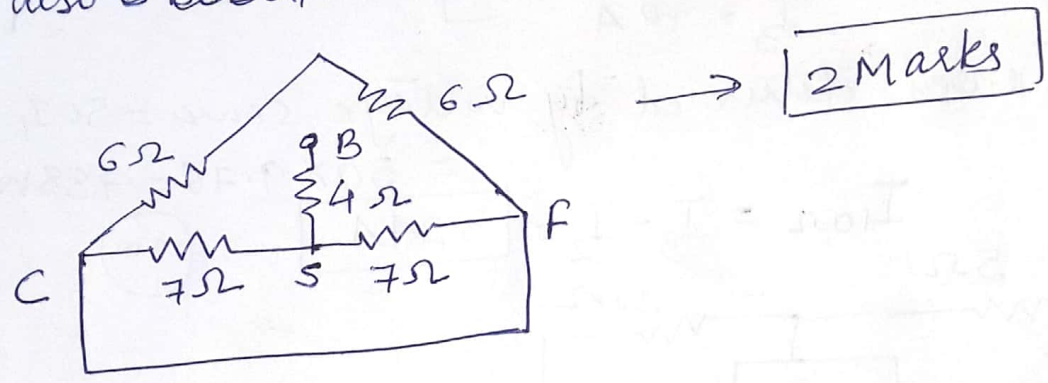 6Ω
→ 2 Marks
6Ω
B
4Ω
F
C
7Ω
S
7Ω